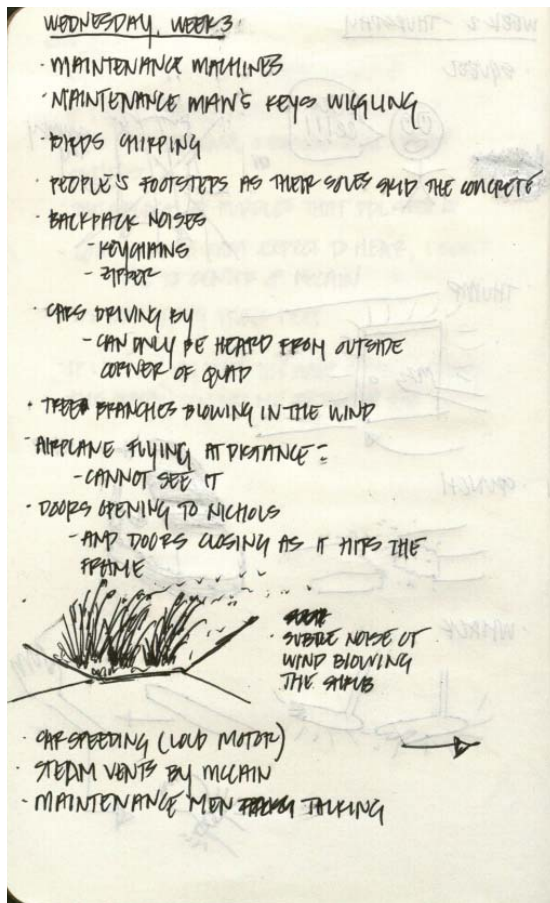 WEDNESDAY, WEEK 3
· MAINTENANCE MACHINES
· MAINTENANCE MAN'S KEYS WIGGLING
· BIRDS CHIRPING
· PEOPLE'S FOOTSTEPS AS THEIR SOLES SKID THE CONCRETE
· BACKPACK NOISES
- KEYCHAINS
- ZIPPER
· CARS DRIVING BY
- CAN ONLY BE HEARD FROM OUTSIDE
CORNER OF QUAD
· TREE BRANCHES BLOWING IN THE WIND
· AIRPLANE FLYING AT DISTANCE -
- CANNOT SEE IT
· DOORS OPENING TO NICHOLS
- AND DOORS CLOSING AS IT HITS THE
FRAME
· SUBTLE NOISE OF
WIND BLOWING
THE SHRUB
· CAR SPEEDING (LOUD MOTOR)
· STEAM VENTS BY MCCAIN
· MAINTENANCE MEN TALKING